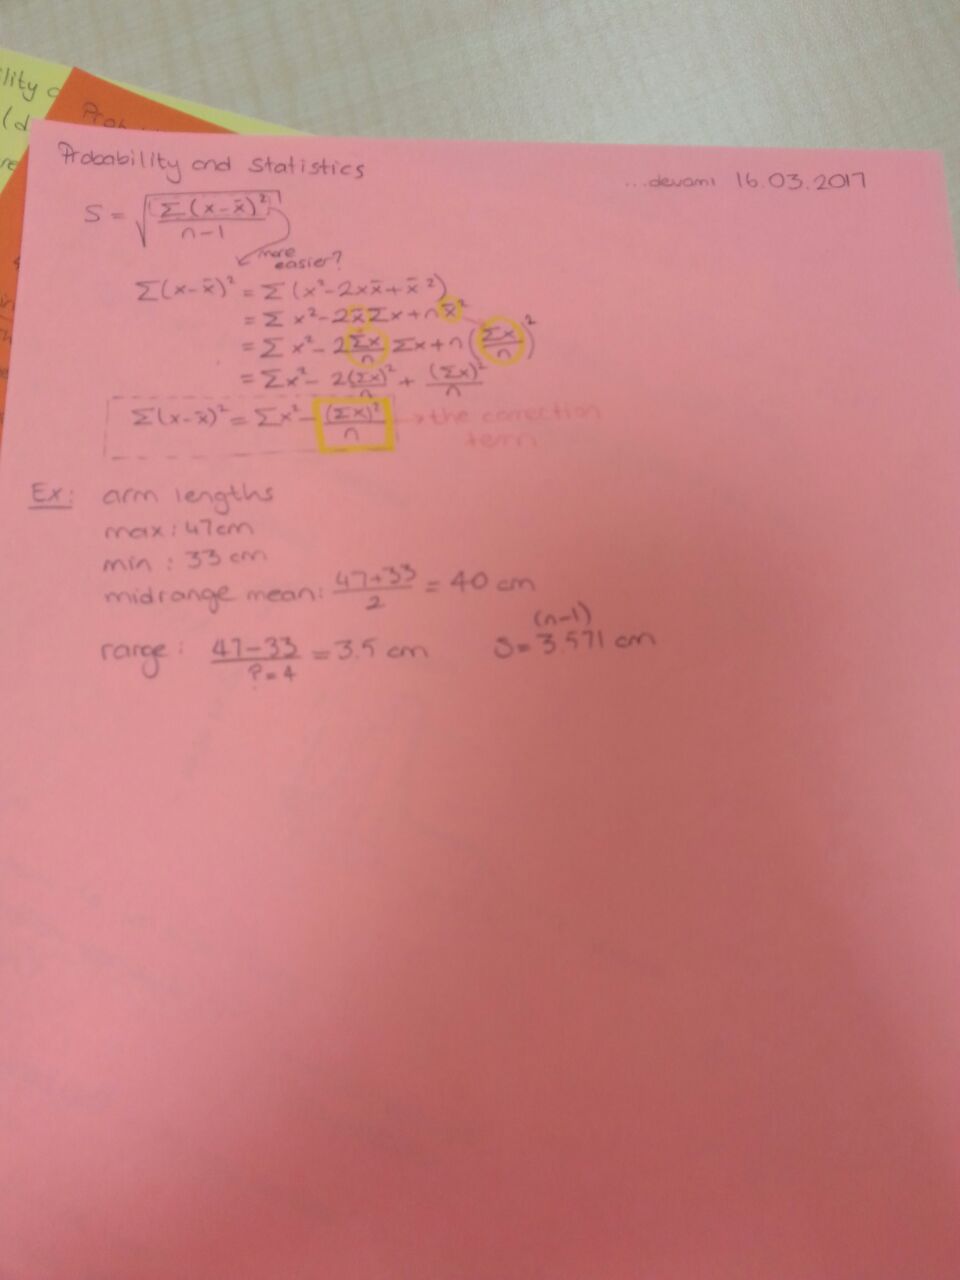 Probability and Statistics
...devamı 16.03.2017
S = √(Σ(x-x̄)²/(n-1))
more easier?
Σ(x-x̄)² = Σ(x²-2xx̄+x̄²)
= Σx²-2x̄Σx+nx̄²
= Σx²-2(Σx/n)Σx+n(Σx/n)²
= Σx²-2(Σx)²/n+(Σx)²/n
Σ(x-x̄)² = Σx²-(Σx)²/n → the correction
term
Ex: arm lengths
max: 47cm
min: 33 cm
midrange mean: (47+33)/2 = 40 cm
range: (47-33)/(?=4) = 3.5 cm
(n-1)
S=3.571 cm